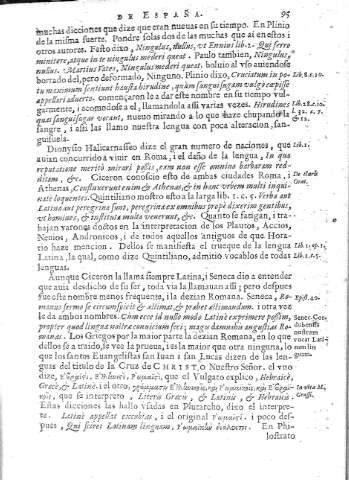 DE ESPAÑA. 95
muchas dicciones que dize que eran nuevas en su tiempo. En Plinio
de la misma suerte. Pondre solas dos de las muchas que ai en estos i
otros autores. Festo dixo, Ningulus, nullus, ut Ennius lib. 2. Qui ferro
minitere, atque in te ningulus mederi queat. Paulo tambien, Ningulus,
nullus. Martius Vates, Ningulus mederi queat. bolvio al uso
borrado del, pero deformado, Ninguno. Plinio dixo, Cruciatum in po- Lib. 8. c. 10.
tu maximum sentiunt hausta hirudine, quàm sanguisugam vulgo cœpisse
appellari adverto. començaron le a dar este nombre en su tiempo vul-
garmente, i llamandola assi varias vezes. Hirudines
quas sanguisugas vocant, nuevo mirando a lo que haze chupando la
sangre, i assi las llamo nuestra lengua con poca alteracion, san-
guisuela.
Dionysio Halicarnasseo dize el gran numero de naciones, que Lib. 1.
avian concurrido a vivir en Roma, i el daño de la lengua, In qua
reputatione meritò mirari possis, eam non esse omnino barbaram red-
ditam, &c. Ciceron conoscio esto de ambas ciudades Roma, i De claris
Athenas, Confluxerunt enim & Athenas, & in hanc urbem multi inqui- Orat.
natè loquentes. Quintiliano nuestro eñol a la larga lib. 1. c. 5. Verba aut
Latina aut peregrina sunt, peregrina ex omnibus propè dixerim gentibus,
ut homines, & instituta multa venerunt, &c. Quanto se fatigan, i tra-
bajan varones doctos en la interpretacion de los Plautos, Accios,
Nevios, Andronicos, i de todos aquellos antiguos de que Hora-
tio haze mencion. Dellos se manifiesta el trueque de la lengua Lib. 2. ep. 1.
Latina, la qual, como dize Quintiliano, admitio vocablos de todas Lib. 1. c. 5.
lenguas.
Aunque Ciceron la llama siempre Latina, i Seneca dio a entender
que avia desdicho de su ser, toda via la llamavan assi; pero despues
fue este nombre menos frequente, i la dezian Romana. Seneca, Ro- Epist. 40.
manus sermo se circumspicit & æstimat & præbet æstimandum. i otra vez
le da ambos nombres. Cum ecce id nullo modo Latinè exprimere possim, Senec.
propter quod lingua nostra convicium feci; magu damnabis angustias Ro-
manas. Los Griegos por la mayor parte la dezian Romana, en lo que
dellos se a traido, se vee la prueva, i es la maior que otra ninguna, lo
que los santos Euangelistas san Iuan i san Lucas dizen de las len-
guas del titulo de la Cruz de CHRISTO Nuestro Señor. el vno
dize, Ἑβραϊςὶ, Ἑλληνιςὶ, Ῥωμαϊςὶ, que el Vulgato explico, Hebraicè,
Græcè, & Latinè. i el otro, γράμμασιν Ἑλληνικοῖς καὶ Ῥωμαικοῖς καὶ Ἑβραι-
κοῖς, que se interpreto, Literis Græcis, & Latinis, & Hebraicis. In vita M.
Estas dicciones las hallo usadas en Plutarcho, dixo el interpre- Crassi.
te, Latinè, i el original Ῥωμαϊςὶ, i poco des-
pues, Qui scires Latinam linguam, Ῥωμαϊςὶ. En Phi-
lostrato